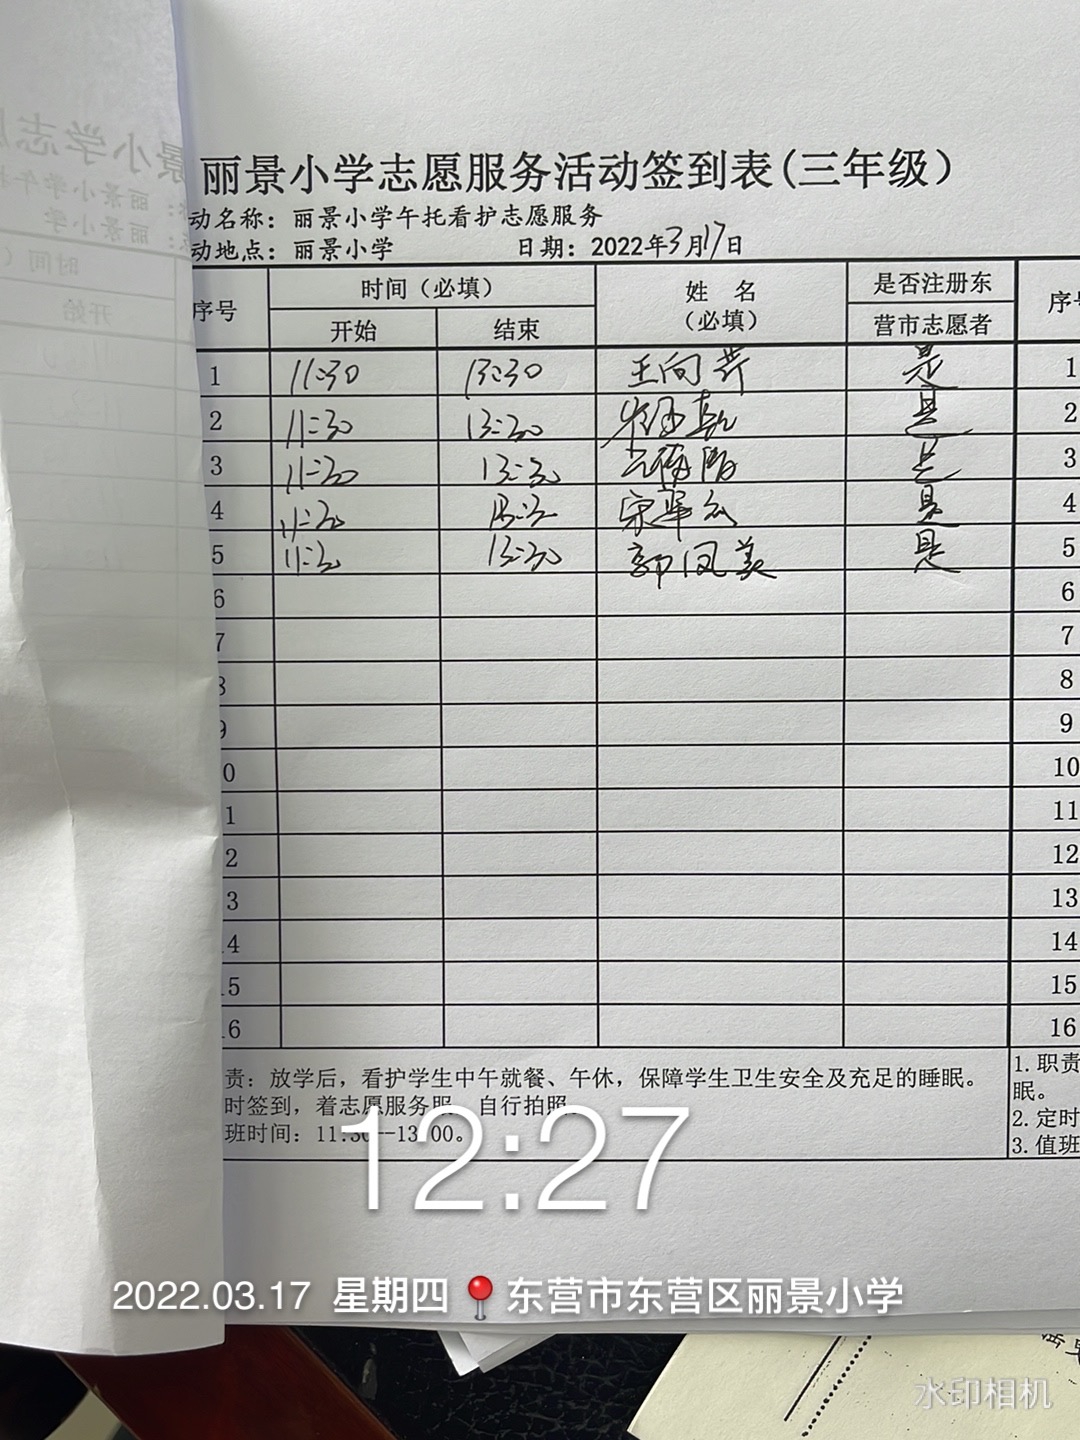 丽景小学志愿服务活动签到表(三年级)
动名称：丽景小学午托看护志愿服务
动地点：丽景小学 日期：2022年3月17日
序号 时间（必填） 姓 名 （必填） 是否注册东 营市志愿者 序号
开始 结束
1 11:30 13:30 王向芹 是 1
2 11:30 13:30 是 2
3 11:30 13:30 是 3
4 11:30 13:30 宋翠 是 4
5 11:30 13:30 郭凤美 是 5
6 6
7 7
8 8
9 9
0 10
1 11
2 12
3 13
4 14
5 15
6 16
责：放学后，看护学生中午就餐、午休，保障学生卫生安全及充足的睡眠。
时签到，着志愿服务服，自行拍照。
班时间：11:30--13:00。
1.职责
眠。
2.定时
3.值班
12:27
2022.03.17 星期四 东营市东营区丽景小学
水印相机